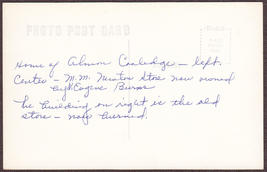 PHOTO POST CARD
Home of Almon Coolidge — left.
Center — M.M. Newton Store now owned
by Eugene Burns
The building on right is the old
store — now burned.